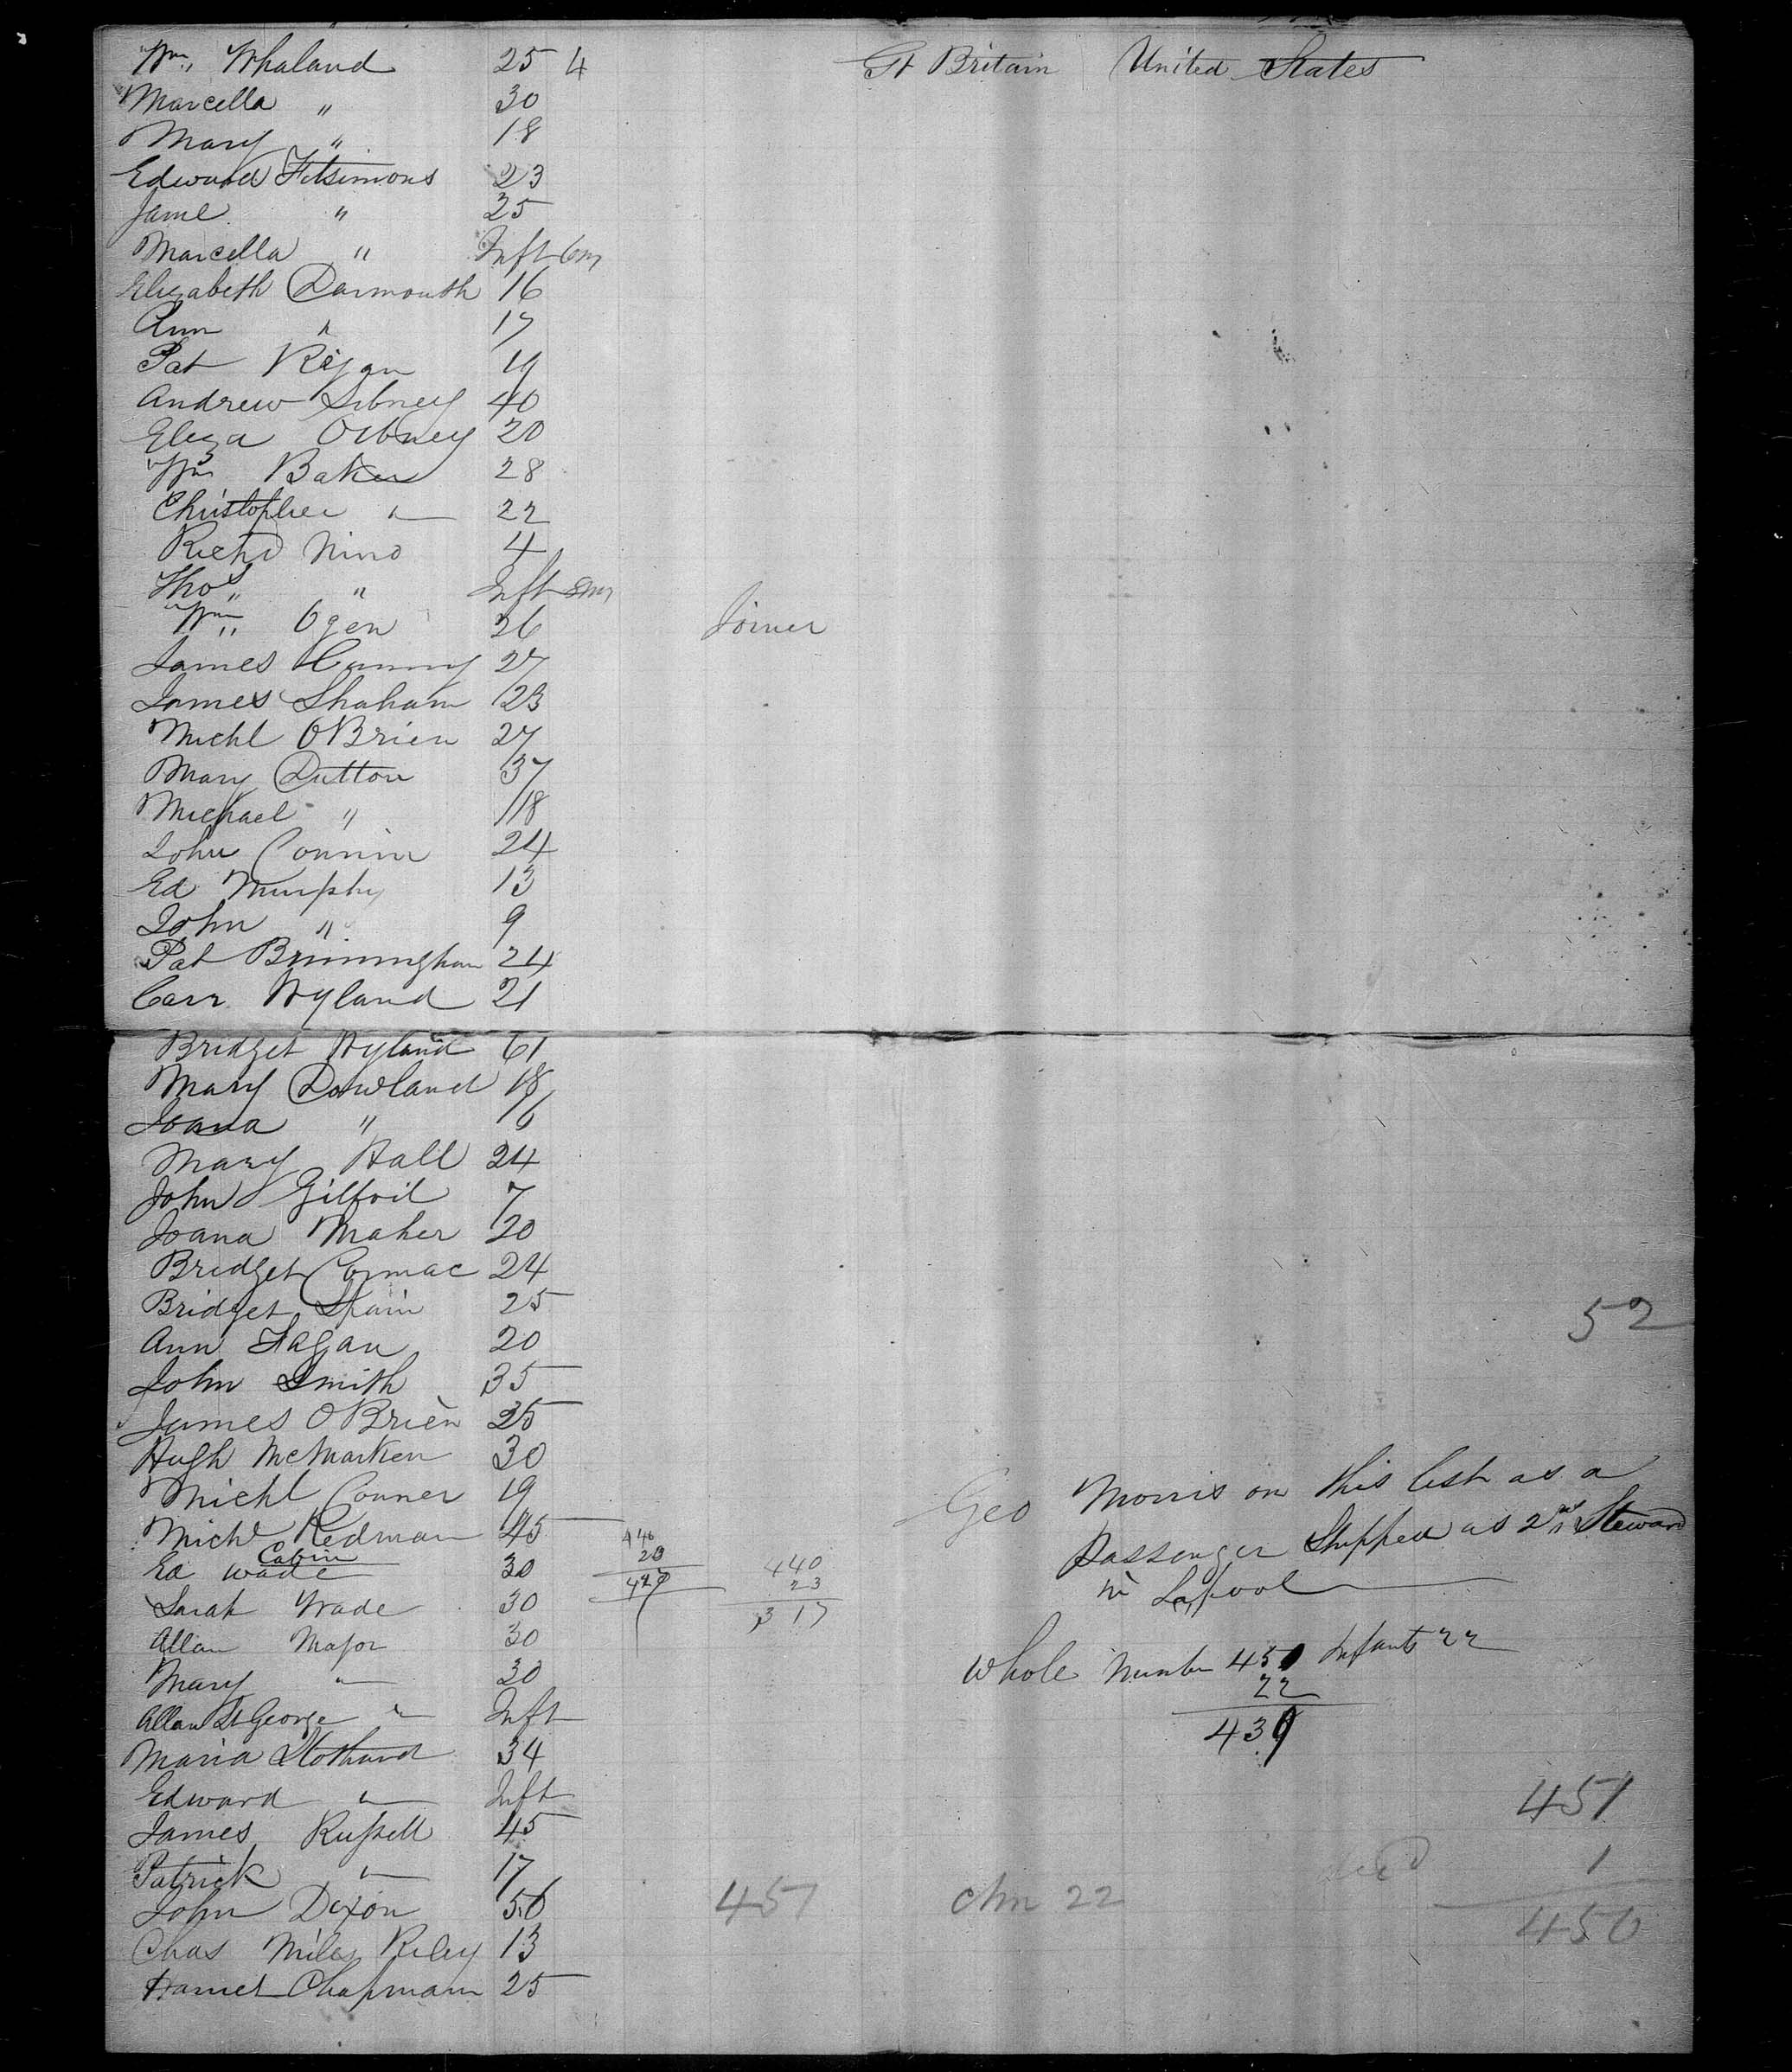 Wm Whaland 25 4 Gt Britain United States
Marcella " 30
Mary " 18
Edward Fitsimons 23
Jane " 25
Marcella " Inft 6m
Elizabeth Darmouth 16
Ann " 17
Pat Regan 19
Andrew Sibney 40
Eliza Sibney 20
Wm Baker 28
Christopher " 22
Richd Nind 4
Thos " Inft 8m
Wm Ogen 26 Joiner
James Cummy 27
James Shaham 23
Michl OBrien 27
Mary Dutton 37
Michael " 18
John Connin 24
Ed Murphy 13
John " 9
Pat Brimingham 24
Carr Hyland 21
Bridget Hyland 61
Mary Dowland 18
Joana " 16
Mary Hall 24
John Gilfoil 7
Joana Maher 20
Bridget Cormac 24
Bridget Spain 25
52
Ann Fagan 20
John Smith 35
James OBrien 25
Hugh McMarken 30
Michl Conner 19
Geo Morris on this list as a
passenger Shipped as 2nd Steward
in Lpool
Michl Redman 45
Cabin
Ed Wade 30
440
23
317
Sarah Wade 30
Allan Major 30
Mary " 30
Whole Number 450 Infants 22
22
439
Allan St George " Inft
Maria Stothard 34
Edward " Inft
451
James Russell 45
Patrick " 17
decd 1
John Dixon 56
451 chn 22
450
Chas Miles Riley 13
Harriet Chapman 25